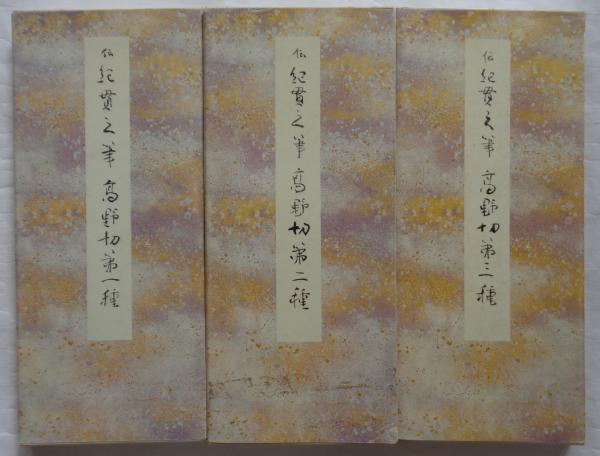 伝 紀貫之筆 高野切第一種
伝 紀貫之筆 高野切第二種
伝 紀貫之筆 高野切第三種